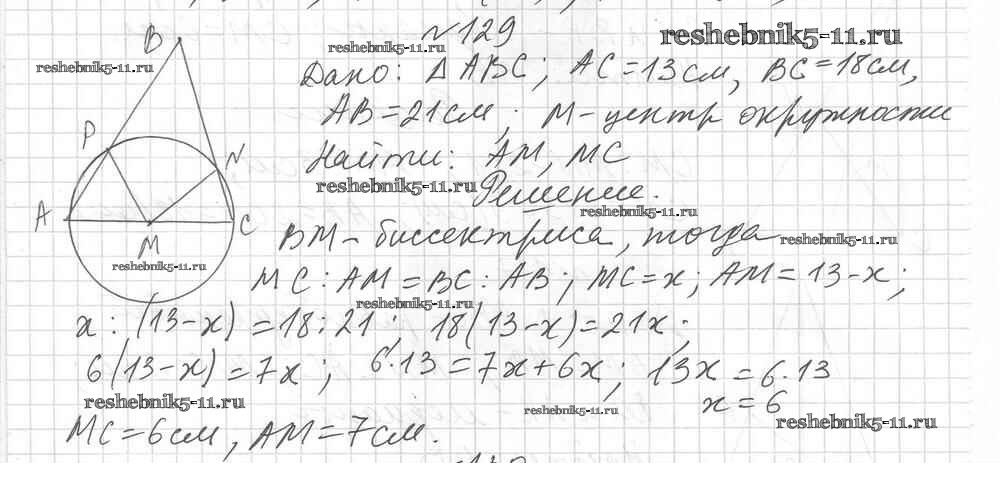 №129
reshebnik5-11.ru
reshebnik5-11.ru
reshebnik5-11.ru
B
Дано: Δ ABC; AC=13см, BC=18см,
AB=21см; M-центр окружности
P
N
Найти: AM, MC
reshebnik5-11.ru
Решение.
reshebnik5-11.ru
A
C
M
BM-биссектриса, тогда
reshebnik5-11.ru
reshebnik5-11.ru
MC:AM=BC:AB; MC=x; AM=13-x;
reshebnik5-11.ru
x:(13-x)=18:21; 18(13-x)=21x;
6(13-x)=7x; 6·13=7x+6x; 13x=6·13
reshebnik5-11.ru
reshebnik5-11.ru
x=6
reshebnik5-11.ru
MC=6см, AM=7см.